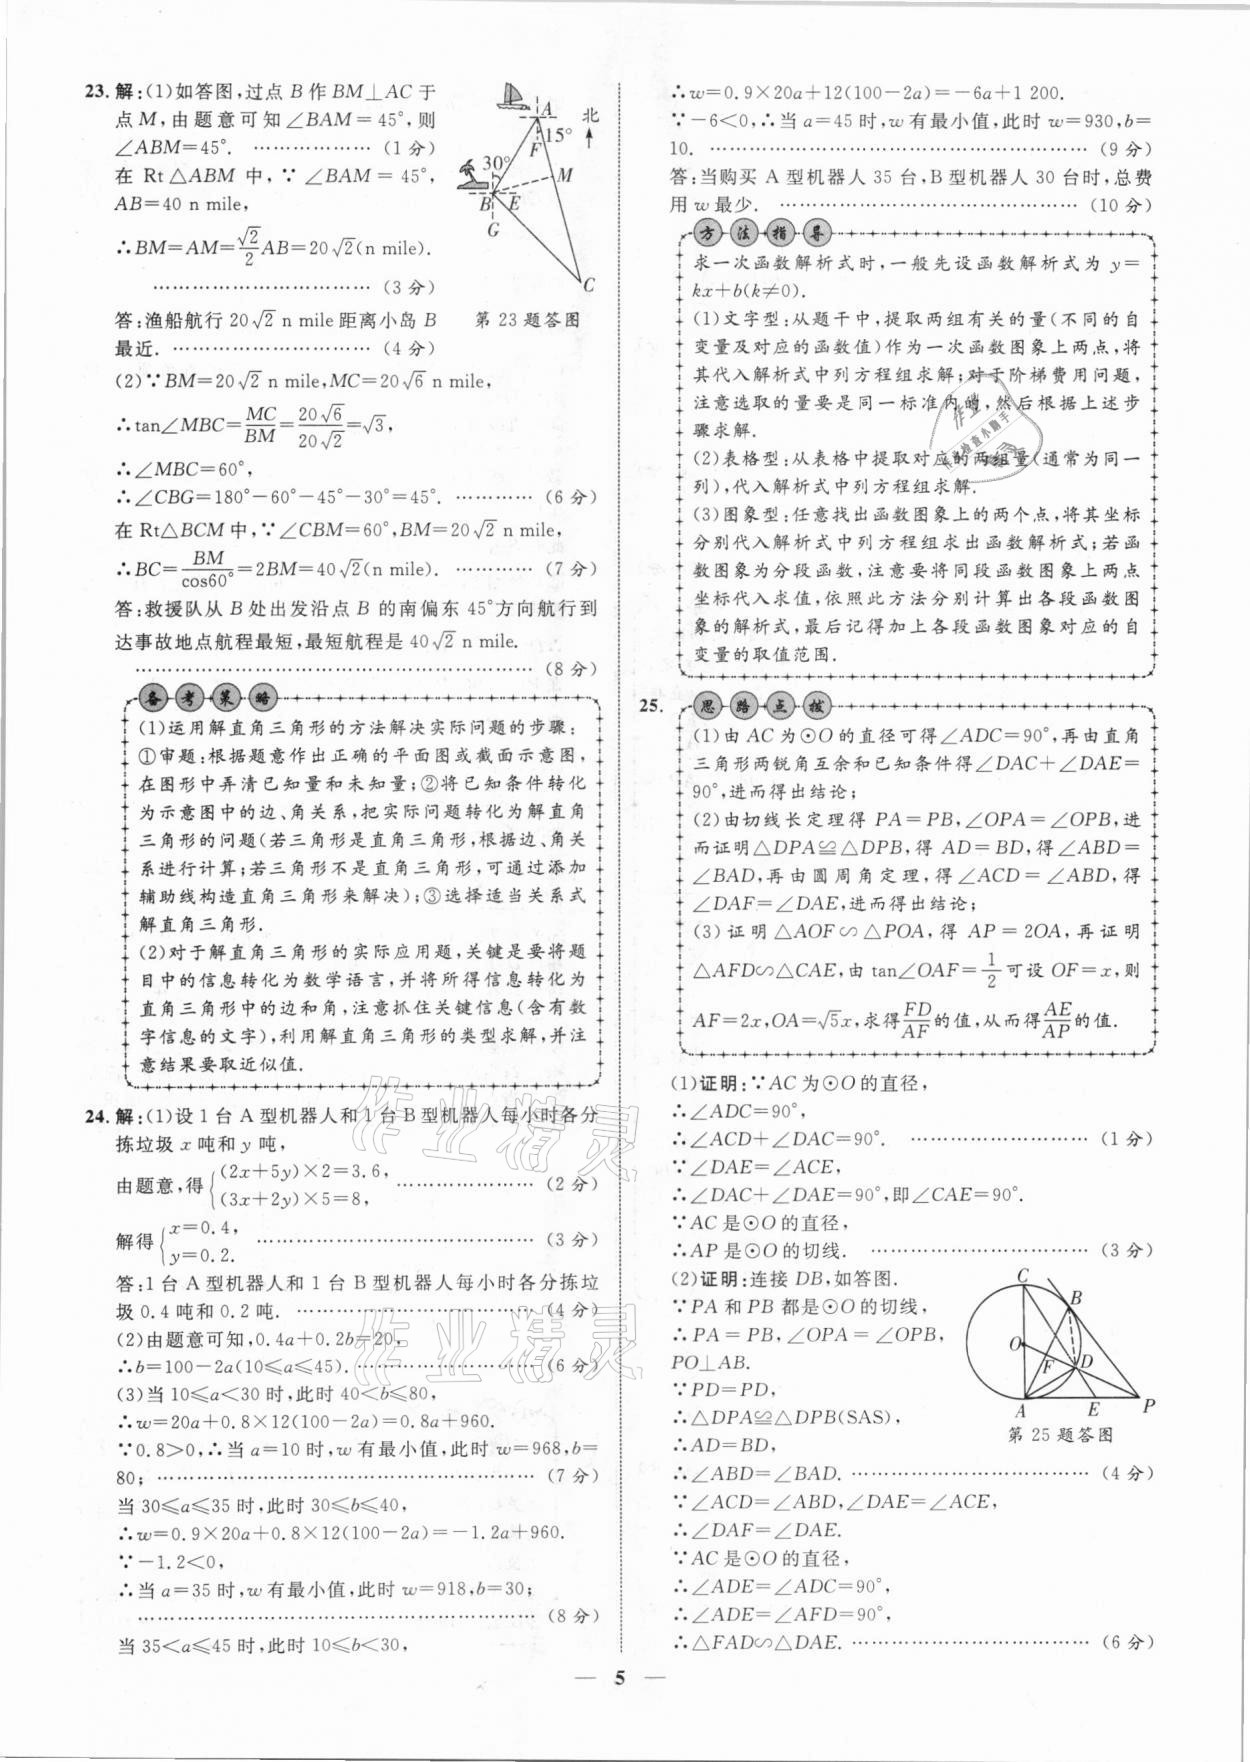 23.解:(1)如答图,过点B作BM⊥AC于
点M,由题意可知∠BAM=45°,则
∠ABM=45°. ……………… (1分)
在 Rt△ABM 中,∵∠BAM=45°,
AB=40 n mile,
∴BM=AM=√2/2AB=20√2(n mile).
…………………………… (3分)
答:渔船航行20√2 n mile距离小岛B
最近. ………………………… (4分)
A
北
15°
F
30°
M
B
E
G
C
第23题答图
(2)∵BM=20√2 n mile,MC=20√6 n mile,
∴tan∠MBC=MC/BM=20√6/20√2=√3,
∴∠MBC=60°,
∴∠CBG=180°-60°-45°-30°=45°. ………… (6分)
在Rt△BCM中,∵∠CBM=60°,BM=20√2 n mile,
∴BC=BM/cos60°=2BM=40√2(n mile). ………… (7分)
答:救援队从B处出发沿点B的南偏东45°方向航行到
达事故地点航程最短,最短航程是40√2 n mile.
…………………………………………………… (8分)
备考策略
(1)运用解直角三角形的方法解决实际问题的步骤:
①审题:根据题意作出正确的平面图或截面示意图,
在图形中弄清已知量和未知量;②将已知条件转化
为示意图中的边、角关系,把实际问题转化为解直角
三角形的问题(若三角形是直角三角形,根据边、角关
系进行计算;若三角形不是直角三角形,可通过添加
辅助线构造直角三角形来解决);③选择适当关系式
解直角三角形.
(2)对于解直角三角形的实际应用题,关键是要将题
目中的信息转化为数学语言,并将所得信息转化为
直角三角形中的边和角,注意抓住关键信息(含有数
字信息的文字),利用解直角三角形的类型求解,并注
意结果要取近似值.
24.解:(1)设1台A型机器人和1台B型机器人每小时各分
拣垃圾x吨和y吨,
由题意,得{(2x+5y)×2=3.6,
(3x+2y)×5=8, ………………… (2分)
解得{x=0.4,
y=0.2. …………………………………… (3分)
答:1台A型机器人和1台B型机器人每小时各分拣垃
圾0.4吨和0.2吨. ……………………………… (4分)
(2)由题意可知,0.4a+0.2b=20,
∴b=100-2a(10≤a≤45). ……………………… (6分)
(3)当10≤a<30时,此时40<b≤80,
∴w=20a+0.8×12(100-2a)=0.8a+960.
∵0.8>0,∴当a=10时,w有最小值,此时w=968,b=
80; ………………………………………………… (7分)
当30≤a≤35时,此时30≤b≤40,
∴w=0.9×20a+0.8×12(100-2a)=-1.2a+960.
∵-1.2<0,
∴当a=35时,w有最小值,此时w=918,b=30;
…………………………………………………… (8分)
当35<a≤45时,此时10≤b<30,
∴w=0.9×20a+12(100-2a)=-6a+1 200.
∵-6<0,∴当a=45时,w有最小值,此时w=930,b=
10. ………………………………………………… (9分)
答:当购买A型机器人35台,B型机器人30台时,总费
用w最少. ……………………………………… (10分)
方法指导
求一次函数解析式时,一般先设函数解析式为y=
kx+b(k≠0).
(1)文字型:从题干中,提取两组有关的量(不同的自
变量及对应的函数值)作为一次函数图象上两点,将
其代入解析式中列方程组求解;对于阶梯费用问题,
注意选取的量要是同一标准内的,然后根据上述步
骤求解.
(2)表格型:从表格中提取对应的两组量(通常为同一
列),代入解析式中列方程组求解.
(3)图象型:任意找出函数图象上的两个点,将其坐标
分别代入解析式中列方程组求出函数解析式;若函
数图象为分段函数,注意要将同段函数图象上两点
坐标代入求值,依照此方法分别计算出各段函数图
象的解析式,最后记得加上各段函数图象对应的自
变量的取值范围.
25.
思路点拨
(1)由AC为⊙O的直径可得∠ADC=90°,再由直角
三角形两锐角互余和已知条件得∠DAC+∠DAE=
90°,进而得出结论;
(2)由切线长定理得PA=PB,∠OPA=∠OPB,进
而证明△DPA≌△DPB,得AD=BD,得∠ABD=
∠BAD,再由圆周角定理,得∠ACD=∠ABD,得
∠DAF=∠DAE,进而得出结论;
(3)证明△AOF∽△POA,得AP=2OA,再证明
△AFD∽△CAE,由tan∠OAF=1/2可设OF=x,则
AF=2x,OA=√5x,求得FD/AF的值,从而得AE/AP的值.
(1)证明:∵AC为⊙O的直径,
∴∠ADC=90°,
∴∠ACD+∠DAC=90°. ……………………… (1分)
∵∠DAE=∠ACE,
∴∠DAC+∠DAE=90°,即∠CAE=90°.
∵AC是⊙O的直径,
∴AP是⊙O的切线. …………………………… (3分)
(2)证明:连接DB,如答图.
∵PA和PB都是⊙O的切线,
∴PA=PB,∠OPA=∠OPB,
PO⊥AB.
∵PD=PD,
∴△DPA≌△DPB(SAS),
∴AD=BD,
∴∠ABD=∠BAD. ……………………………… (4分)
∵∠ACD=∠ABD,∠DAE=∠ACE,
∴∠DAF=∠DAE.
∵AC是⊙O的直径,
∴∠ADE=∠ADC=90°,
∴∠ADE=∠AFD=90°,
∴△FAD∽△DAE. ……………………………… (6分)
C
B
O
F
D
A
E
P
第25题答图
作业精灵
作业精灵
— 5 —